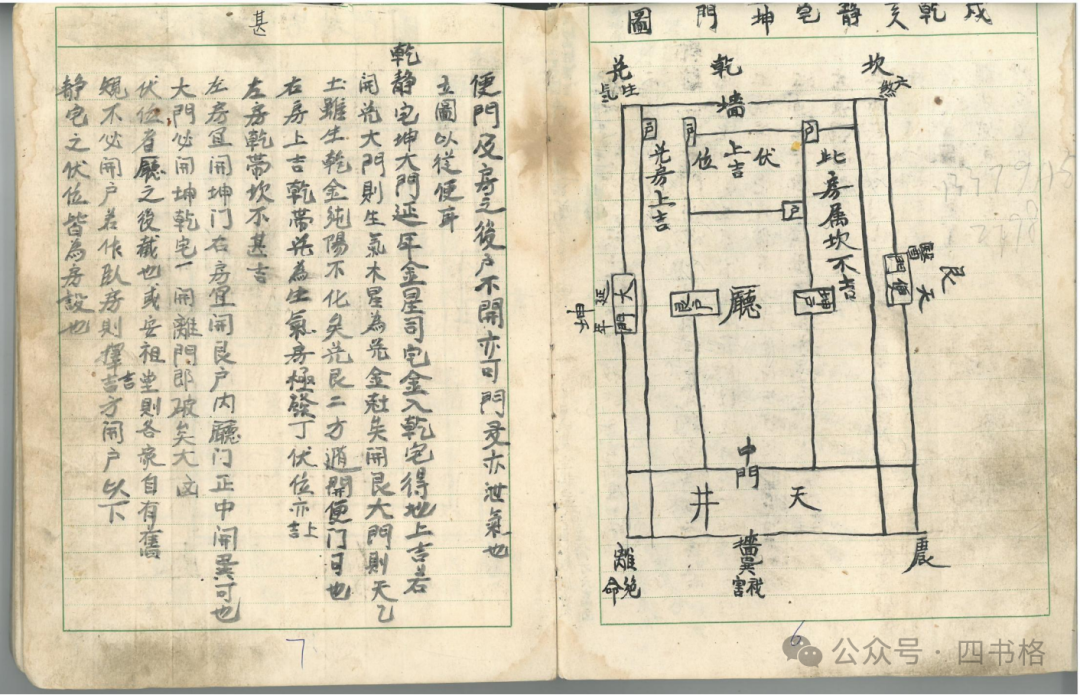 戌乾亥静宅坤門圖
坎
六煞
乾
兑
生氣
墻
户
户
户
伏位
上吉
兑房上吉
此房属坎不吉
户
艮
天醫
便門
大門
延年
坤
艮户
廳
坤户
中門
天井
震
墻巽宫
禍
離
絶命
6
便門及房之後户不開亦可門多亦泄氣也
立圖以從便耳
乾静宅坤大門延年金星司宅金入乾宅得地上吉若
開兑大門則生氣木星為兑金尅矣開艮大門則天乙
土雖生乾金純陽不化矣兑艮二方適開便門可也
右房上吉乾帶兑為生氣房極發丁伏位亦上吉
左房乾帶坎不甚吉
左房宜開坤门右房宜開艮户内廳门正中開巽可也
大門必開坤乾宅一開離門即破矣大凶
伏位者廳之後截也或安祖堂則各家自有舊
規不必開户若作臥房則擇吉方開户以下
静宅之伏位皆為房設也
甚
7
公众号·四书格